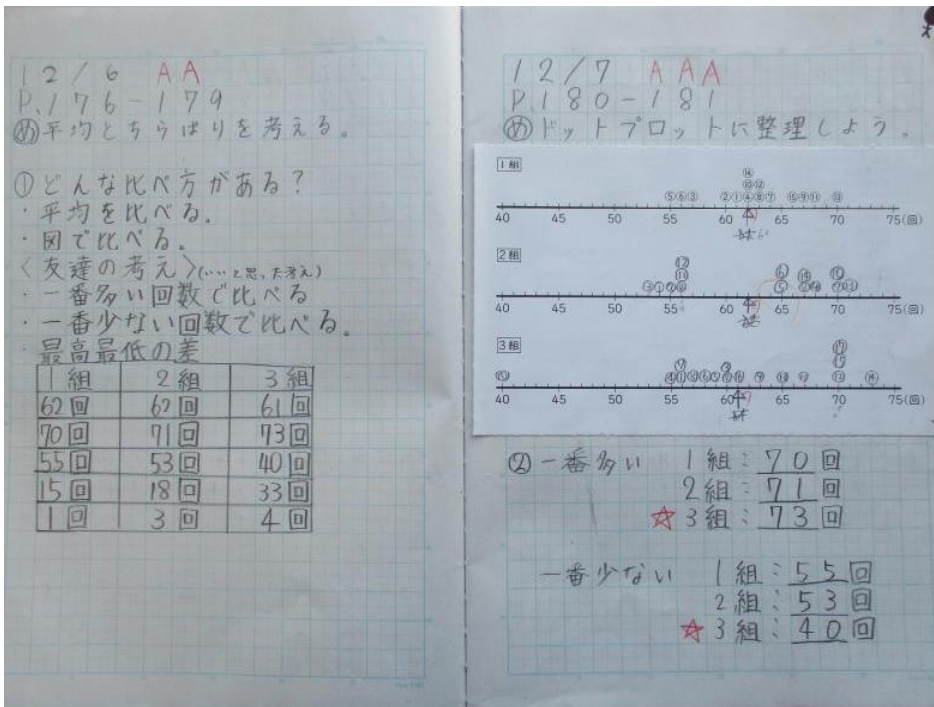 12/6 AA
P.176-179
め 平均とちらばりを考える。
①どんな比べ方がある?
・平均を比べる。
・図で比べる。
〈友達の考え〉(いいと思った考え)
・一番多い回数で比べる
・一番少ない回数で比べる。
・最高最低の差
1組 2組 3組
62回 62回 61回
70回 71回 73回
55回 53回 40回
15回 18回 33回
1回 3回 4回
12/7 AAA
P.180-181
め ドットプロットに整理しよう。
1組
⑭
⑩⑫
⑤⑥③ ②①④⑧⑦ ⑮⑨⑪ ⑬
40 45 50 55 60 65 70 75(回)
2組
40 45 50 55 60 65 70 75(回)
3組
40 45 50 55 60 65 70 75(回)
②一番多い 1組:70回
2組:71回
☆3組:73回
一番少ない 1組:55回
2組:53回
☆3組:40回